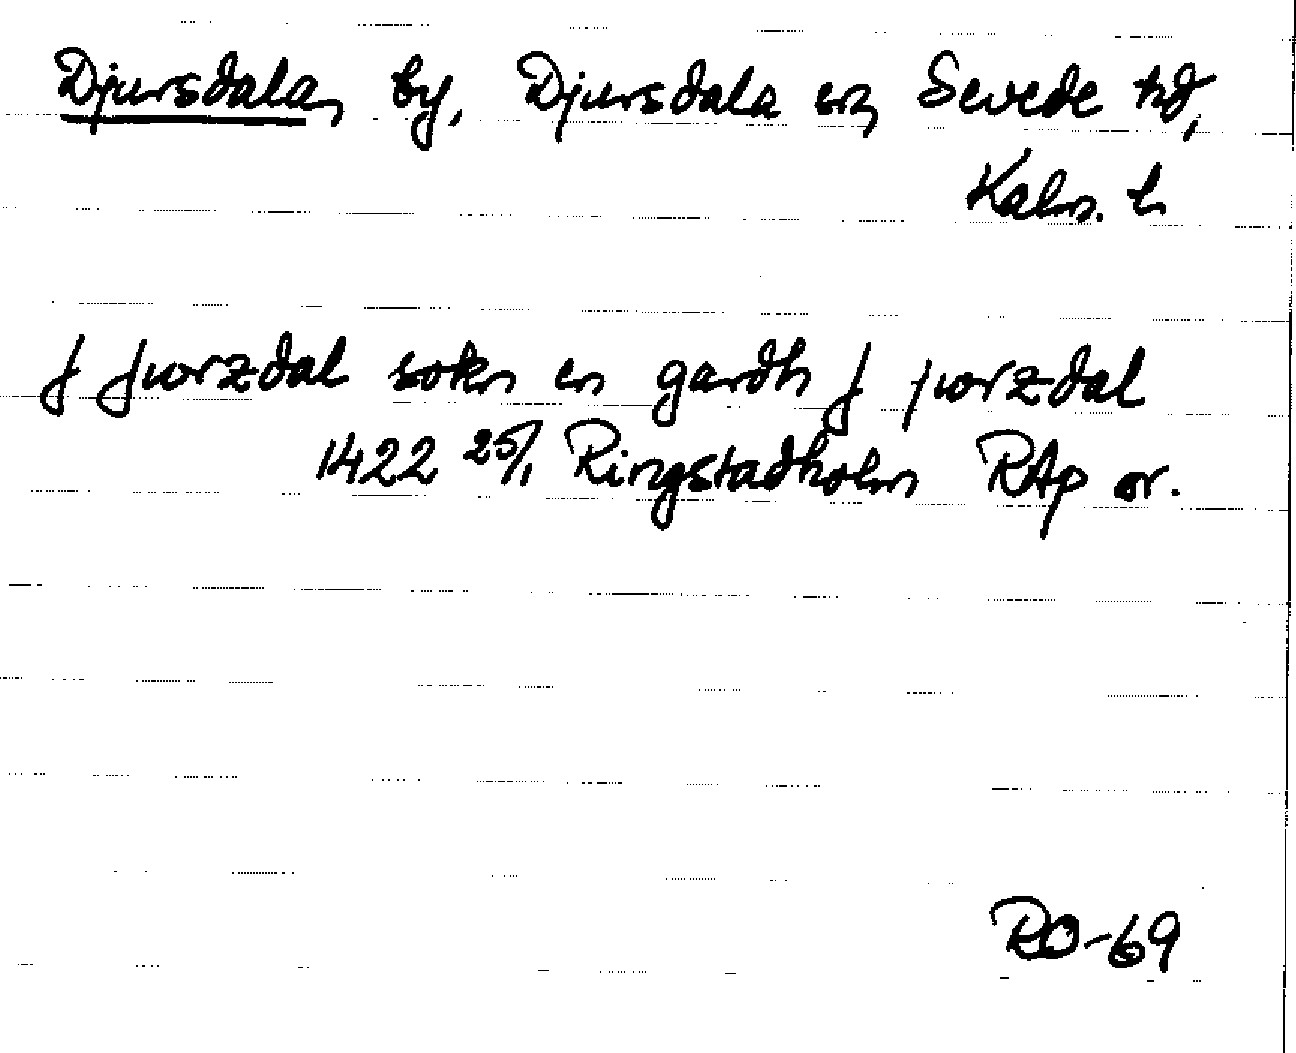 Djursdala, by, Djursdala sn, Sevede hd,
Kalm. l.
J Jworzdal sokn en gardh J jworzdal
1422 25/1 Ringstadholm RAp or.
RO-69